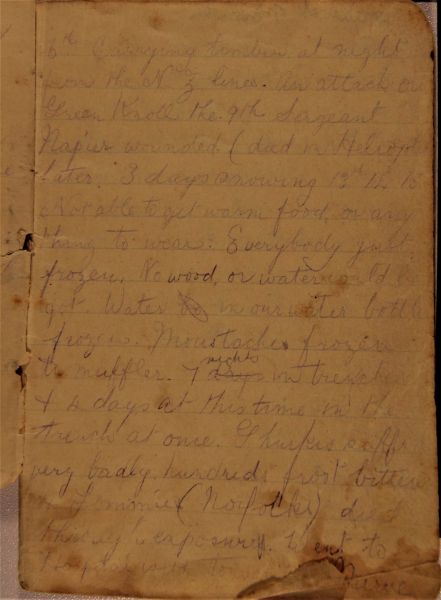 6th Carrying timber at night
from the N Z lines. An attack on
Green Knoll the 9th Sergeant
Napier wounded (died in Heliopolis
later. 3 days snowing 13th 14 15
Not able to get warm food, or any
thing to wear. Everybody just
frozen, No wood, or water could be
got. Water in our water bottle
frozen. Moustaches frozen
to muffler. 7 nights in trenches
& 4 days at this time in the
trench at once. Ghurkis suffer
very badly, hundreds frost bitten
(Norfolks) died
through exposure. went to
hospital